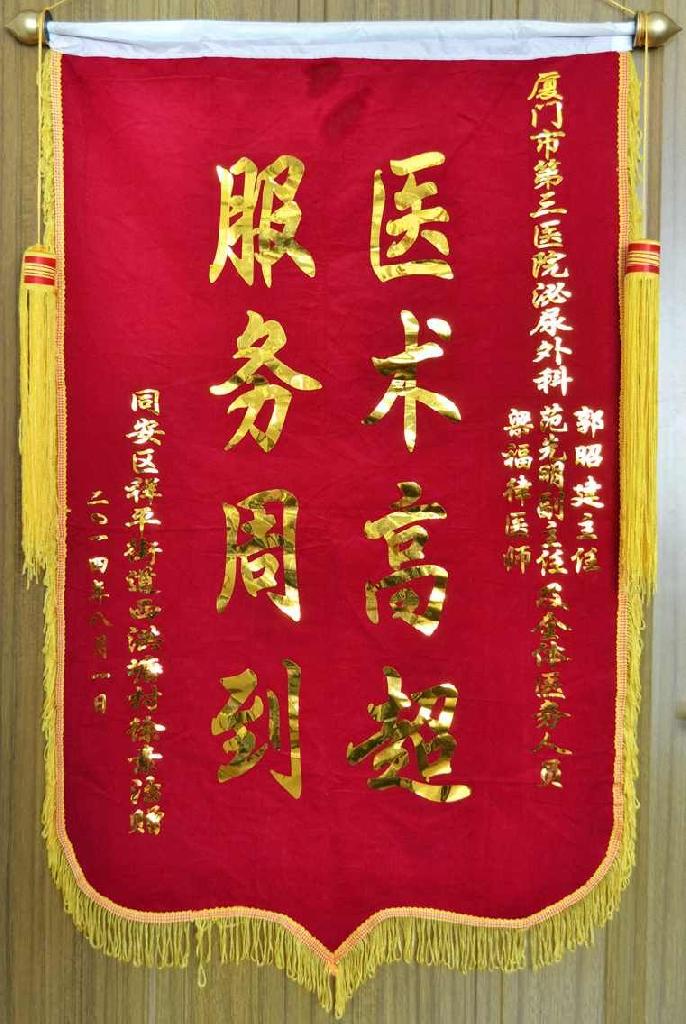 厦门市第三医院泌尿外科
郭昭建主任
范光明副主任
梁福律医师
及全体医务人员
医术高超
服务周到
同安区祥平街道西洪塘村徐喜海赠
二〇一四年八月一日